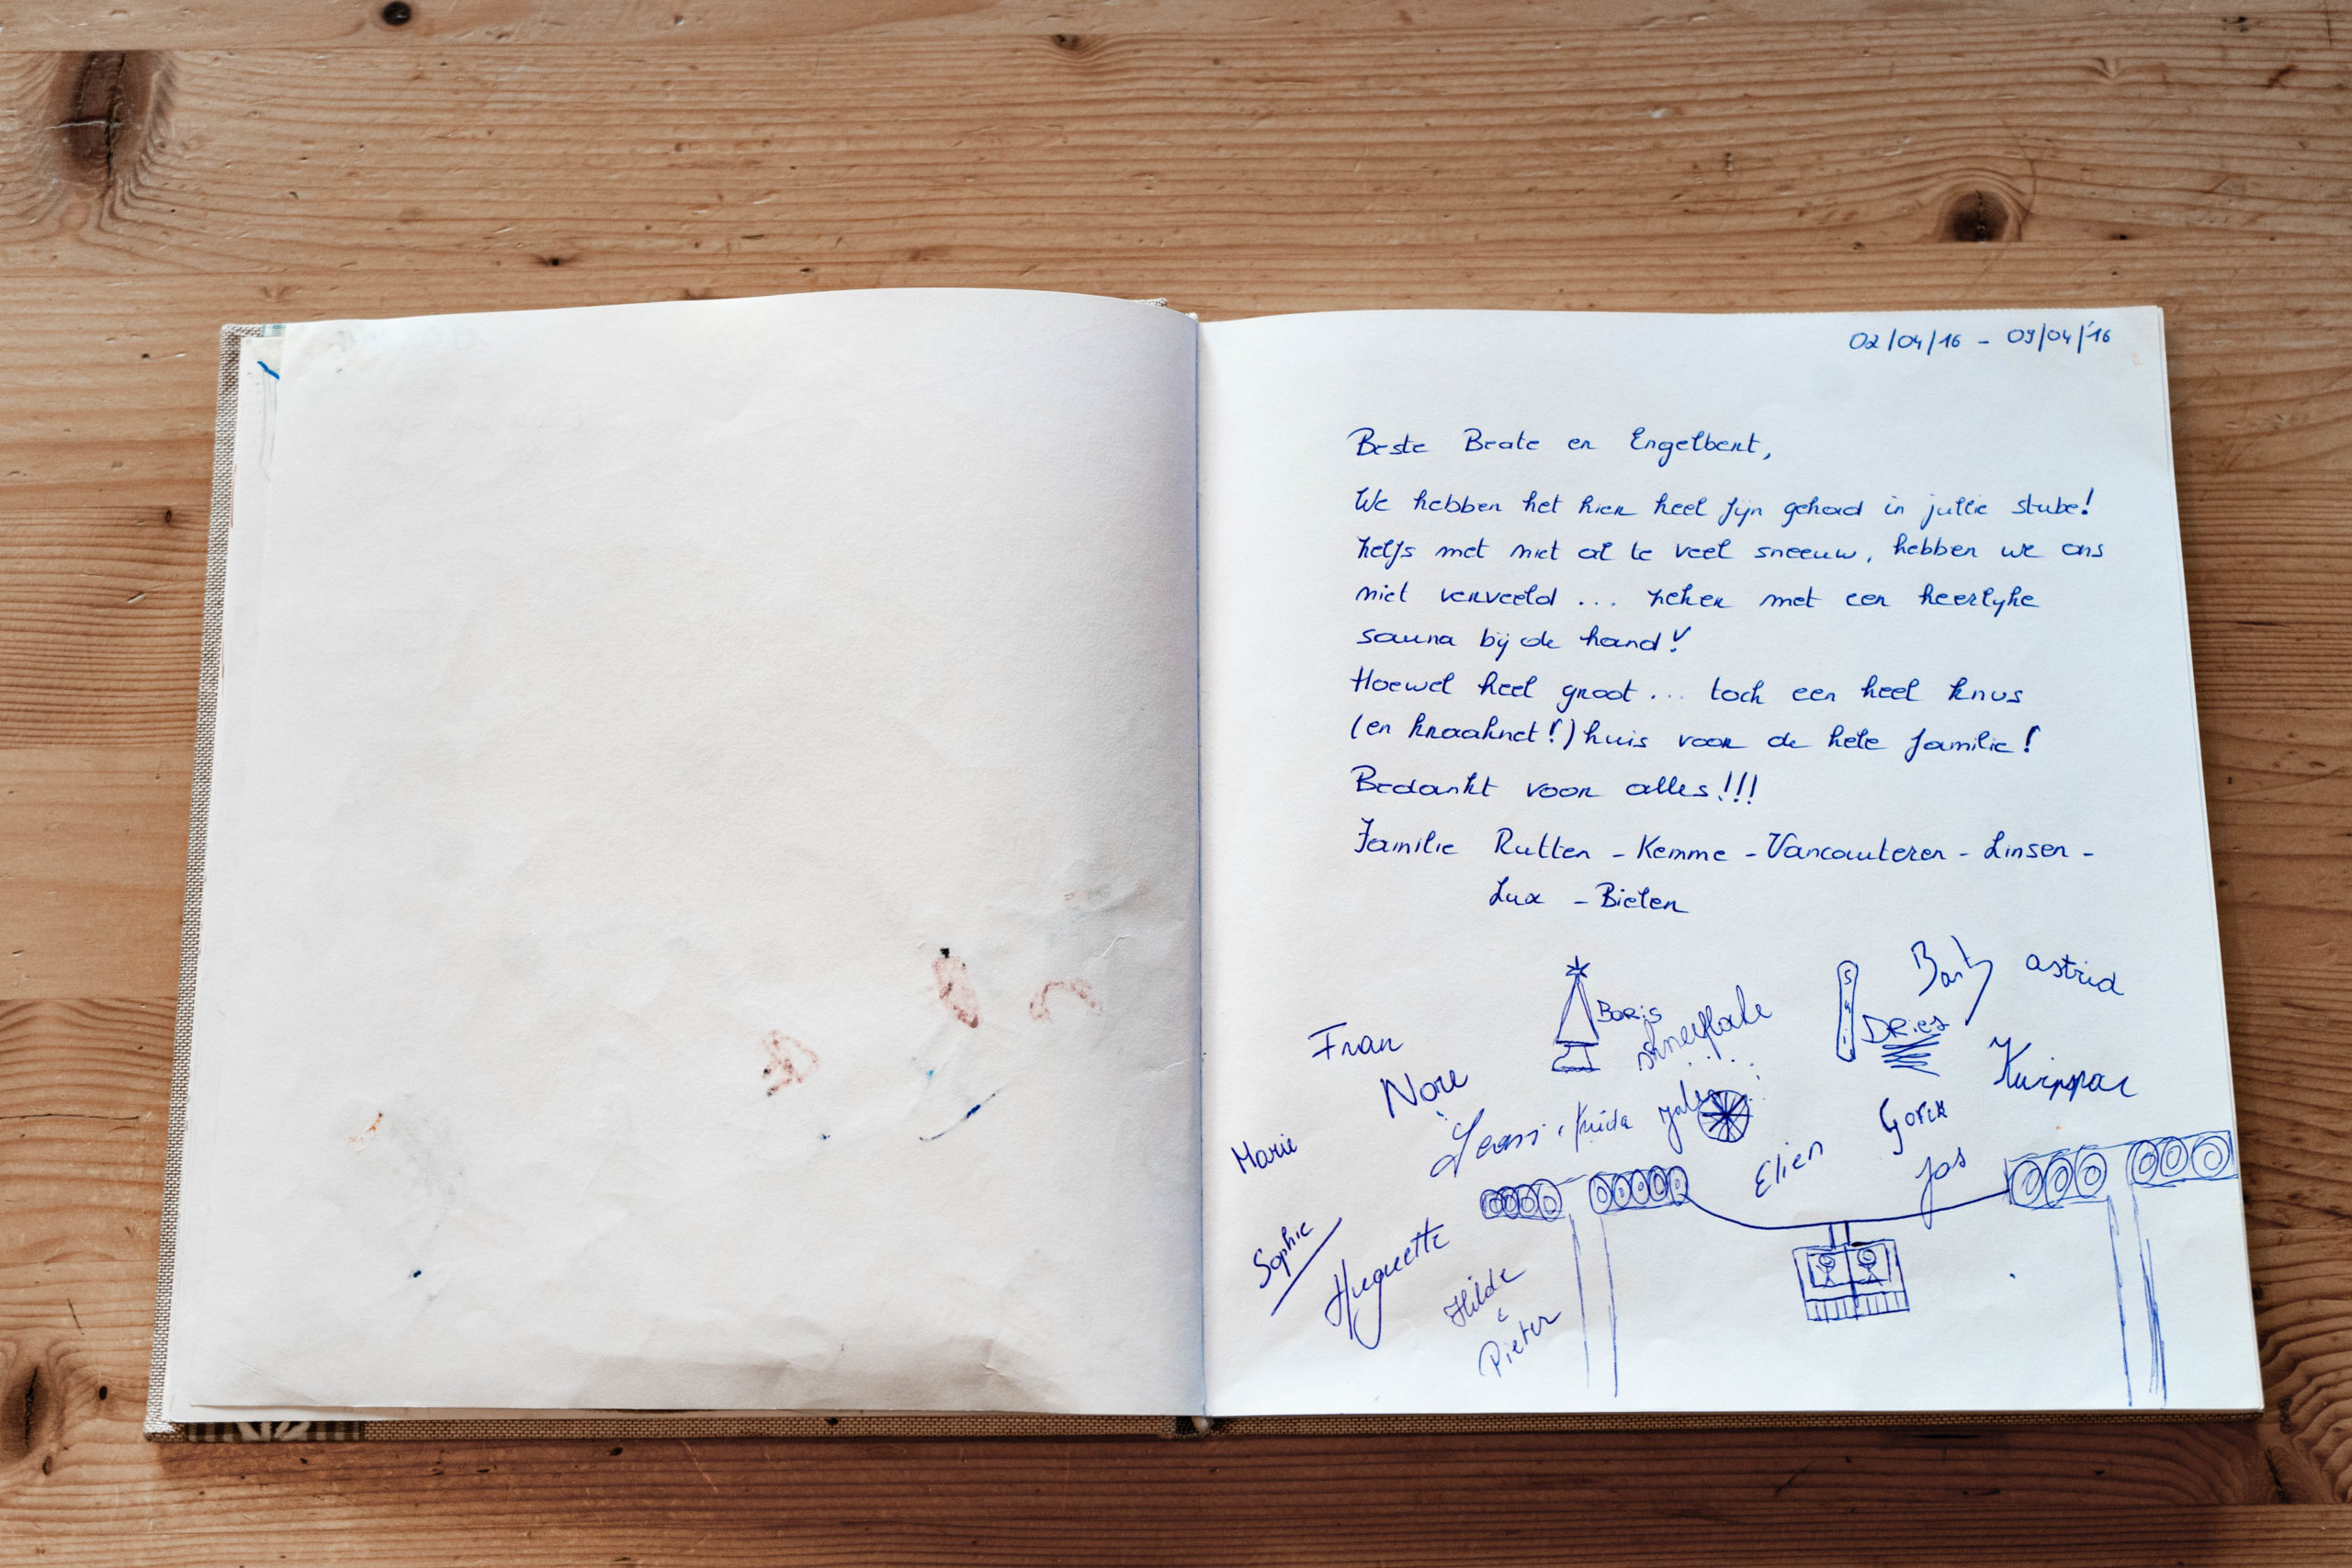 02/04/16 - 09/04/'16
Beste Beate en Engelbert,
We hebben het hier heel fijn gehad in jullie stube!
Zelfs met niet al te veel sneeuw, hebben we ons
niet verveeld ... zeker met een heerlyke
sauna bij de hand!
Hoewel heel groot ... toch een heel knus
(en kraaknet!) huis voor de hele familie!
Bedankt voor alles!!!
Familie Rutten - Kemme - Vancauteren - Linsen -
Lux - Bielen
Bart astrid
Ski
Boris
Dries
Fran
Nore
Gorik
Marie
Elien
Jos
Sophie
Huguette
Hilde
&
Pieter